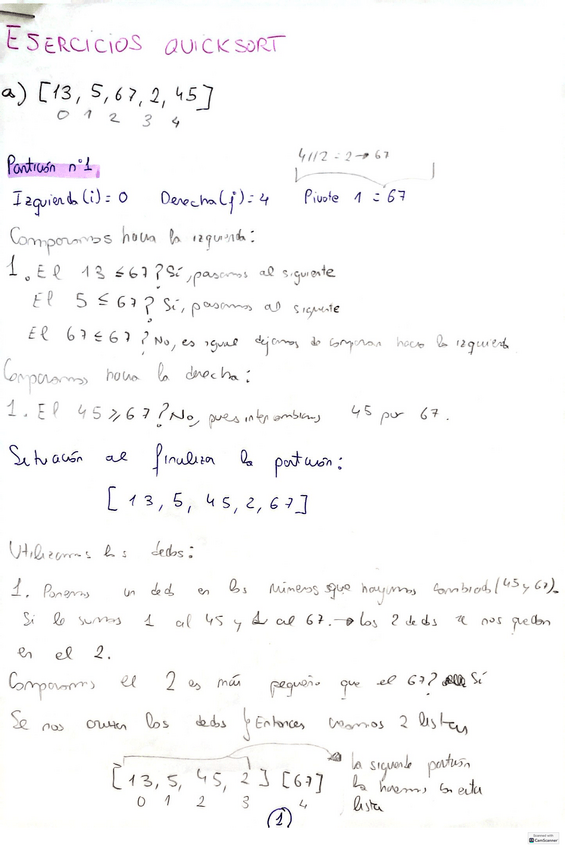 EJERCICIOS QUICKSORT
a) [13, 5, 67, 2, 45]
0 1 2 3 4
4//2 = 2 → 67
Partición nº1
Izquierda(i) = 0 Derecha(j) = 4 Pivote 1 = 67
Comparamos hacia la izquierda:
1. El 13 ≤ 67? Sí, pasamos al siguiente
El 5 ≤ 67? Sí, pasamos al siguiente
El 67 ≤ 67? No, es igual dejamos de comparar hacia la izquierda
Comparamos hacia la derecha:
1. El 45 ≥ 67? No, pues intercambiamos 45 por 67.
Situación al finalizar la partición:
[13, 5, 45, 2, 67]
Utilizamos los dedos:
1. Ponemos un dedo en los números que hayamos cambiado (45 y 67).
Si le sumo 1 al 45 y 1 al 67. → Los 2 dedos se nos quedan
en el 2.
Comparamos el 2 es más pequeño que el 67? Sí
Se nos cruzan los dedos Entonces creamos 2 listas
[13, 5, 45, 2] [67]
la siguiente partición
la hacemos con esta
lista
0 1 2 3 4
(1)
Scanned with
CamScanner